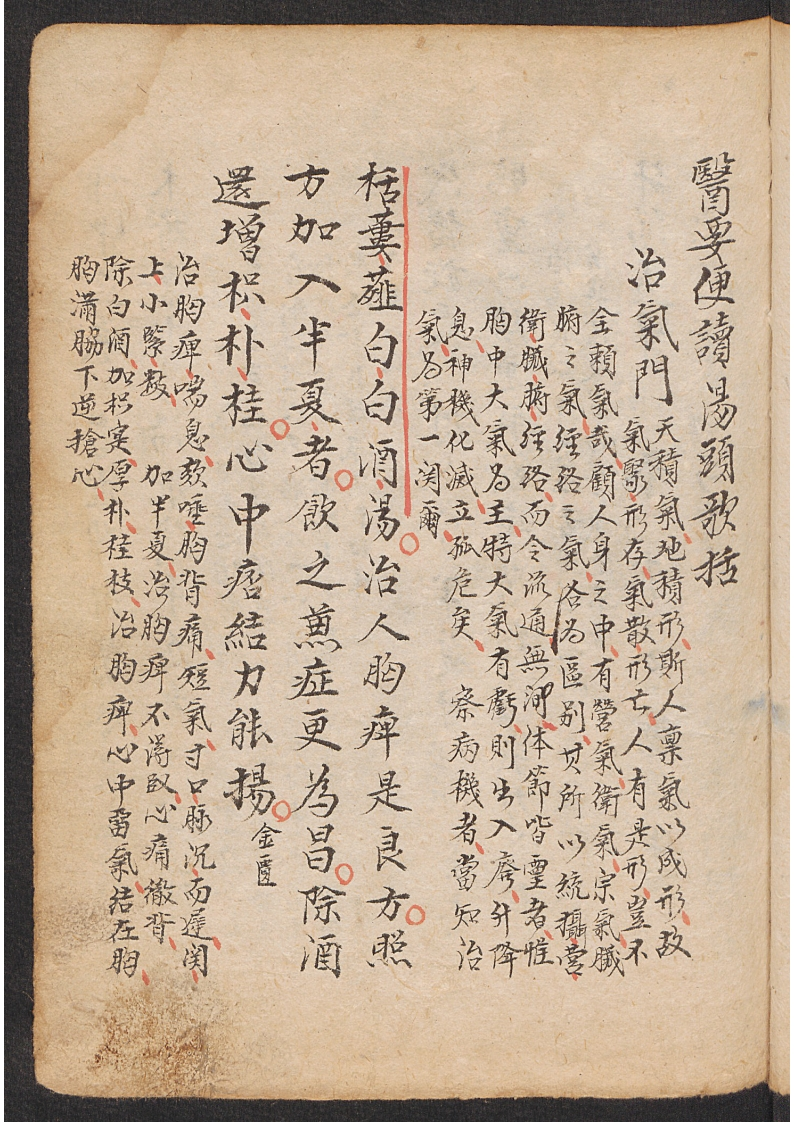 醫要便讀湯頭歌括
治氣門
天積氣地積形斯人禀氣以成形故
氣聚形存氣散形亡人有是形豈不
全賴氣哉顧人身之中有營氣衛氣宗氣臟
腑之氣經絡之氣各為區别其所以統攝營
衛臟腑經絡而令流通無間体節皆靈者惟
胸中大氣為主特大氣有虧則出入廢升降
息神機化滅立孤危矣 察病機者當知治
氣為第一関爾
栝蔞薤白白酒湯治人胸痺是良方照
方加入半夏者飲之蒸症更為昌除酒
還增枳朴桂心中痞結力能揚金匱
治胸痺喘息欬唾胸背痛短氣寸口脉沉而遲関
上小緊数 加半夏治胸痺不得臥心痛徹背
除白酒加枳实厚朴桂枝治胸痺心中留氣结在胸
胸满脇下逆搶心